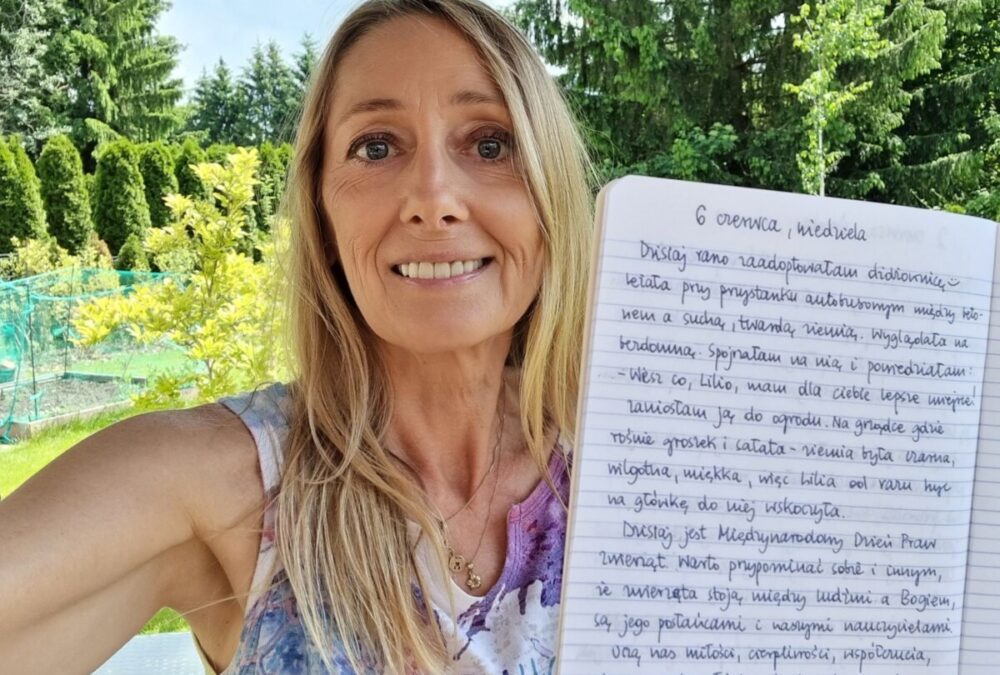 6 czerwca, niedziela
Dzisiaj rano zaadoptowałam dżdżownicę
Leżała przy przystanku autobusowym między beto-
nem a suchą, twardą ziemią. Wyglądała na
bezdomną. Spojrzałam na nią i powiedziałam:
- Wiesz co, Lilio, mam dla ciebie lepsze miejsce!
Zaniosłam ją do ogrodu. Na grządce gdzie
rośnie groszek i sałata - ziemia była czarna,
wilgotna, miękka, więc Lilia od razu hyc
na główkę do niej wskoczyła.
Dzisiaj jest Międzynarodowy Dzień Praw
Zwierząt. Warto przypominać sobie i innym,
że zwierzęta stoją między ludźmi a Bogiem,
są jego posłańcami i naszymi nauczycielami
Uczą nas miłości, cierpliwości, współczucia,